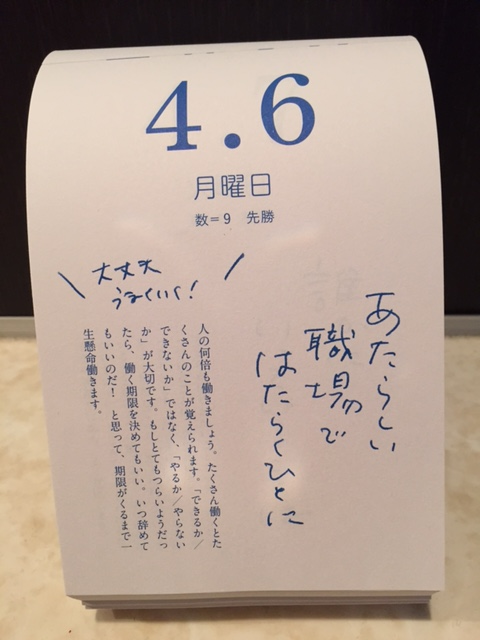 4.6
月曜日
数=9 先勝
あたらしい
職場で
はたらくひとに
大丈夫
うまくいく!
人の何倍も働きましょう。たくさん働くとた
くさんのことが覚えられます。「できるか/
できないか」ではなく、「やるか/やらない
か」が大切です。もしとてもつらいようだっ
たら、働く期限を決めてもいい。いつ辞めて
もいいのだ! と思って、期限がくるまで一
生懸命働きます。